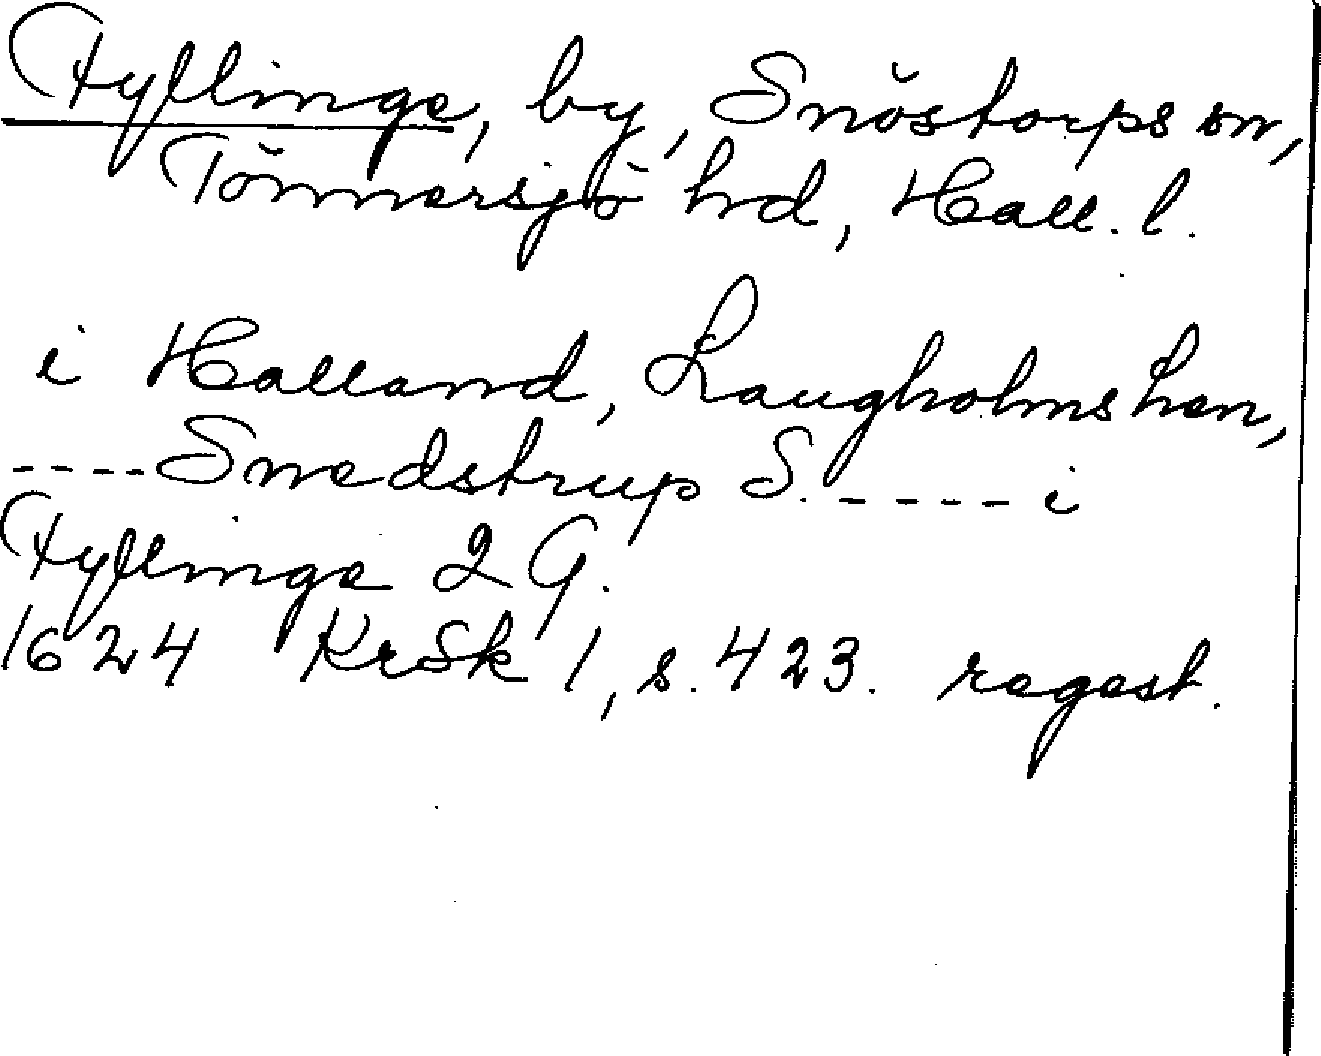 Fyllinge, by, Snöstorps sn,
Tönnersjö hd, Hall. l.
i Halland, Laugholms hen,
----Snedstrup S.-----i
Fyllinge 2 G.
1624 KrSk 1, s. 423. regest.